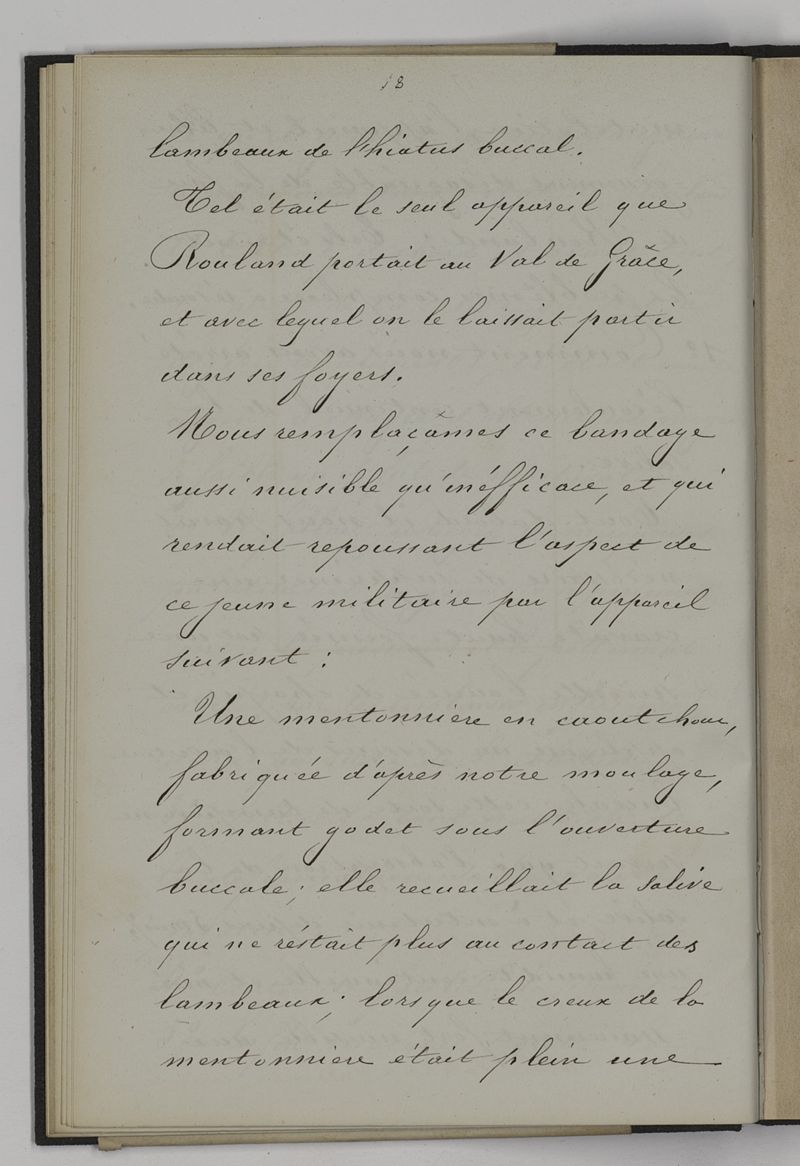 18
lambeaux de l'hiatus buccal.
Tel était le seul appareil que
Rouland portait au Val de Grâce,
et avec lequel on le laissait partir
dans ses foyers.
Nous remplaçâmes ce bandage
aussi nuisible qu'inéfficace, et qui
rendait repoussant l'aspect de
ce jeune militaire par l'appareil
suivant :
Une mentonniere en caoutchouc,
fabriquée d'après notre moulage,
formant godet sous l'ouverture
buccale ; elle recueillait la salive
qui ne réstait plus au contact des
lambeaux ; lorsque le creux de la
mentonniere était plein une